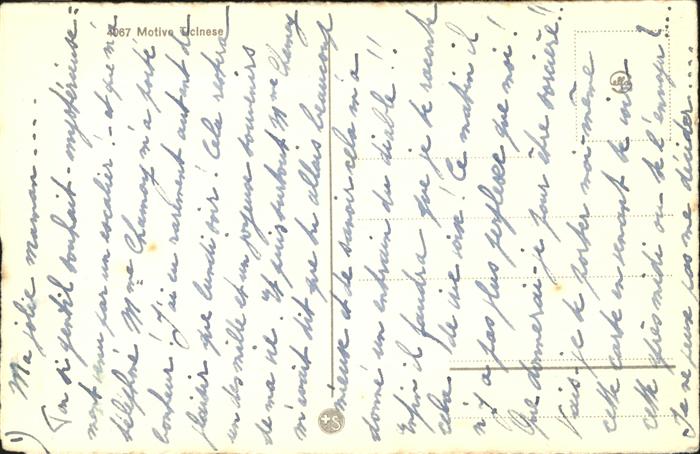 4067 Motivo Ticinese
1)
Ma jolie maman....
Ton si gentil souhait "mystérieuse-
ment venu par un escalier!" et qu'a
téléphoné Mme Chamot m'a porté
bonheur! J'ai eu rarement autant de
plaisir que lundi soir! Cela restera
un des mille et un joyeux souvenirs
de ma vie. Et puis surtout Mme Chamot
m'avait dit que tu allais beaucoup
mieux et de savoir cela m'a
donné un entrain du diable!!
Enfin il faudra que je te raconte
cela de vive voix! Ce matin il
n'y a pas plus perplexe que moi!
Que donnerai-je pour être sorcière!!
Vais-je te porter moi-même
cette carte en venant te voir
cette après-midi ou te l'envoyer?...
Je ne peux pas me décider....